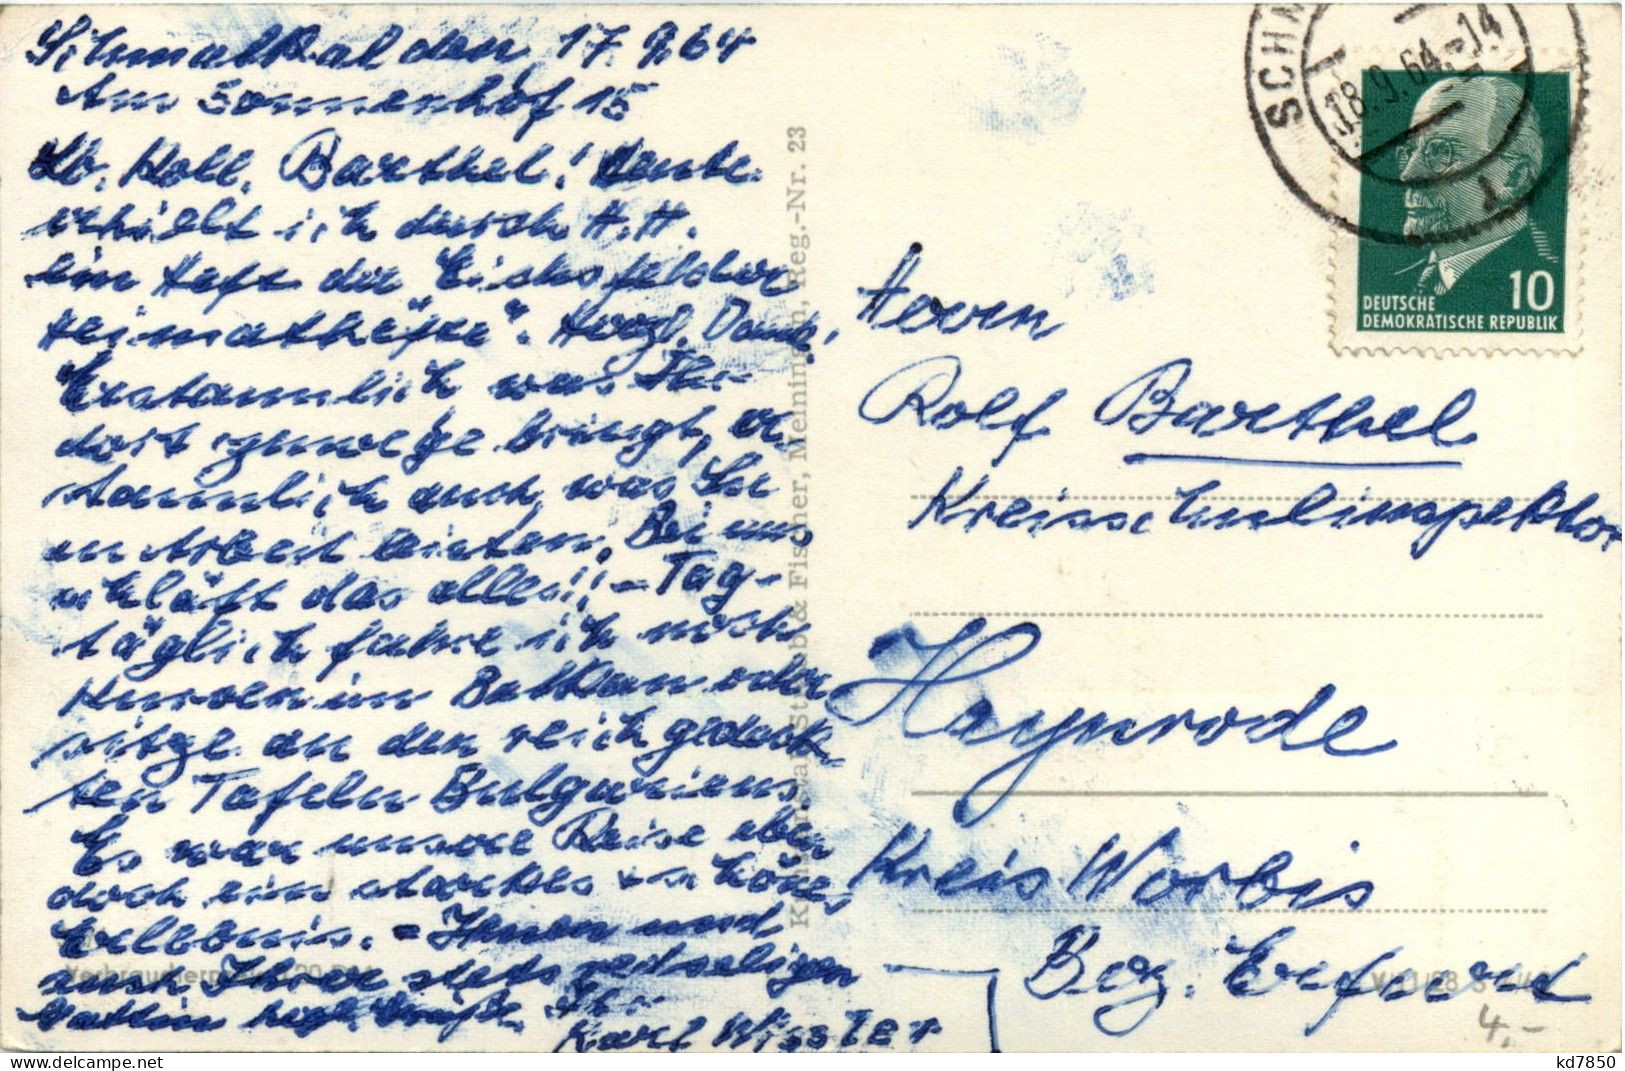 Schmalkalden 17.9.64
Am Sonnenhof 15
Lb. Koll. Barthel! Heute
erhielt ich durch H. H.
ein Heft der "Eichsfelder
Heimathefte". Herzl. Dank!
Erstaunlich was Ihr
dort zuwege bringt, er-
staunlich auch, was Sie
an Arbeit leisten. Bei uns
schläft das alles!! - Tag-
täglich fahre ich noch
Kurven im Balkan oder
sitze an den reich gedeck-
ten Tafeln Bulgariens.
Es war unsere Reise eben
doch ein starkes u. schönes
Erlebnis. - Ihnen und
auch Ihrer stets redseligen
Gattin herzl. Grüße. Ihr
Karl Wissler
Kunstanstalt Straub & Fischer, Meiningen, Reg.-Nr. 23
SCHM
18.9.64.-14
DEUTSCHE
DEMOKRATISCHE REPUBLIK
10
Herrn
Rolf Barthel
Kreisschulinspektor
Haynrode
Kreis Worbis
Bez. Erfurt
4,-
kd7850